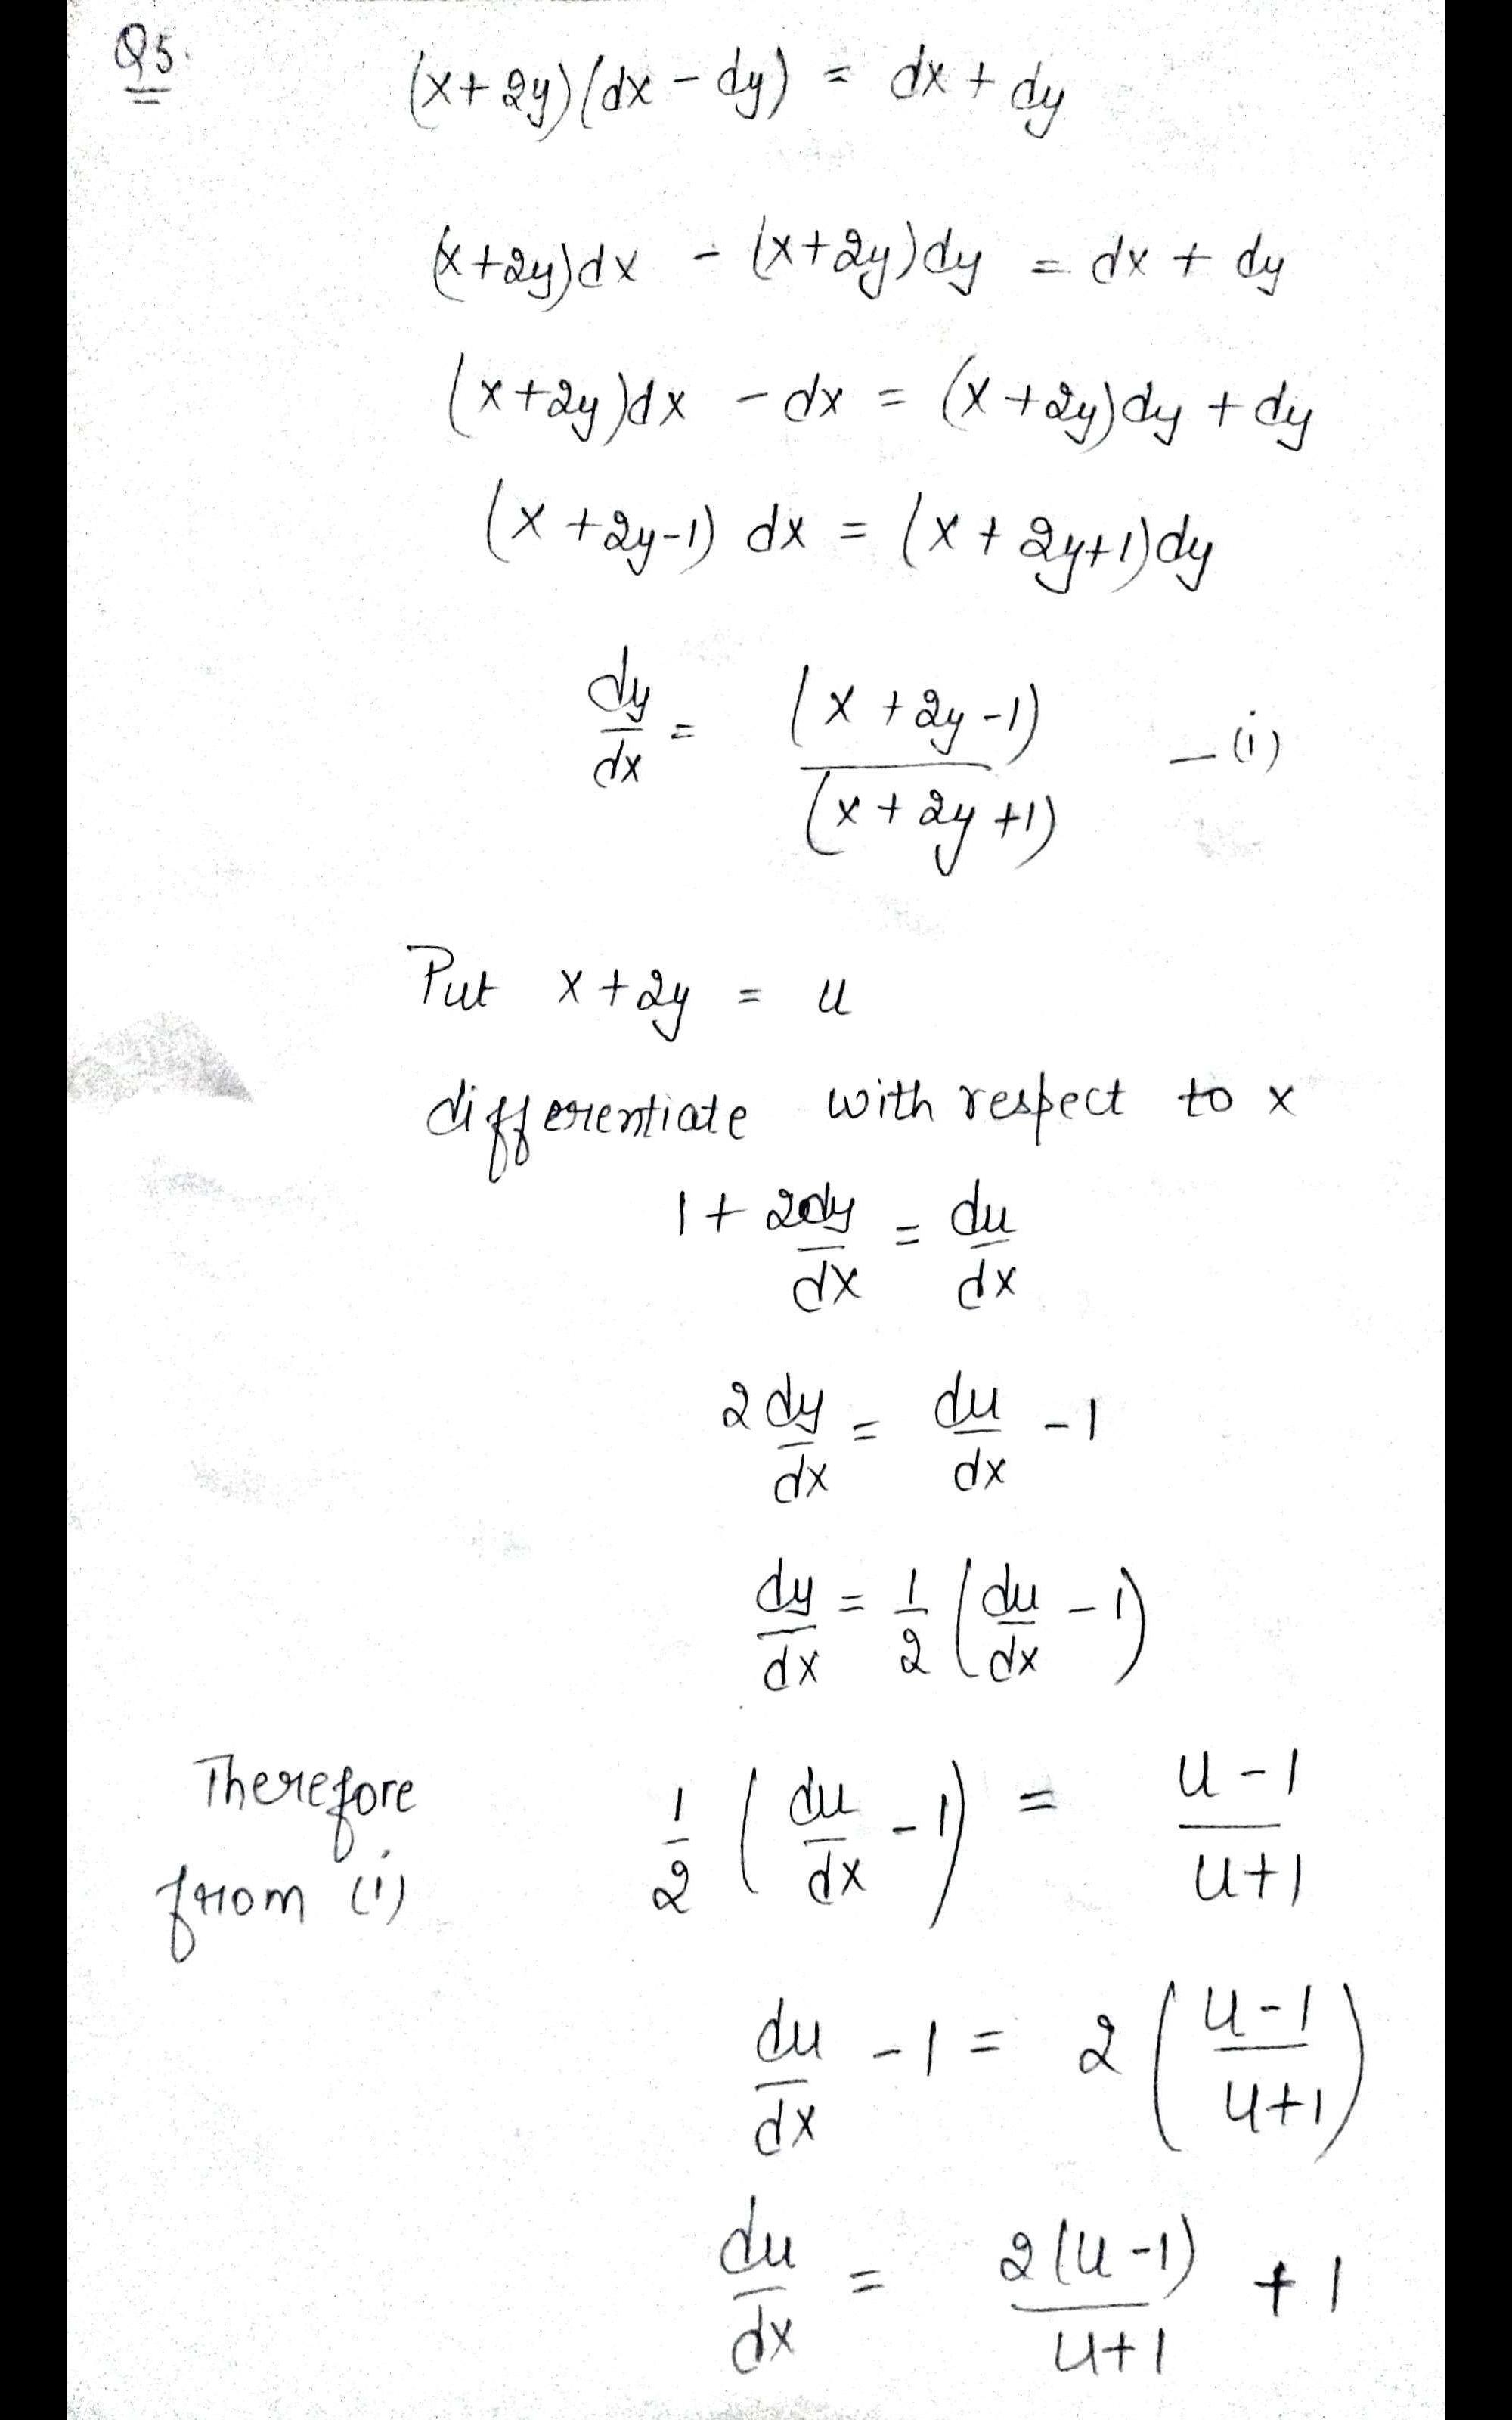 Q5.
(x+2y)(dx - dy) = dx + dy
(x+2y)dx - (x+2y)dy = dx + dy
(x+2y)dx - dx = (x+2y)dy + dy
(x+2y-1) dx = (x+2y+1)dy
dy/dx = (x+2y-1)/(x+2y+1) —(i)
Put x+2y = u
differentiate with respect to x
1 + 2dy/dx = du/dx
2dy/dx = du/dx - 1
dy/dx = 1/2 (du/dx - 1)
Therefore from (i) 1/2 (du/dx - 1) = u-1/u+1
du/dx - 1 = 2 (u-1/u+1)
du/dx = 2(u-1)/u+1 + 1